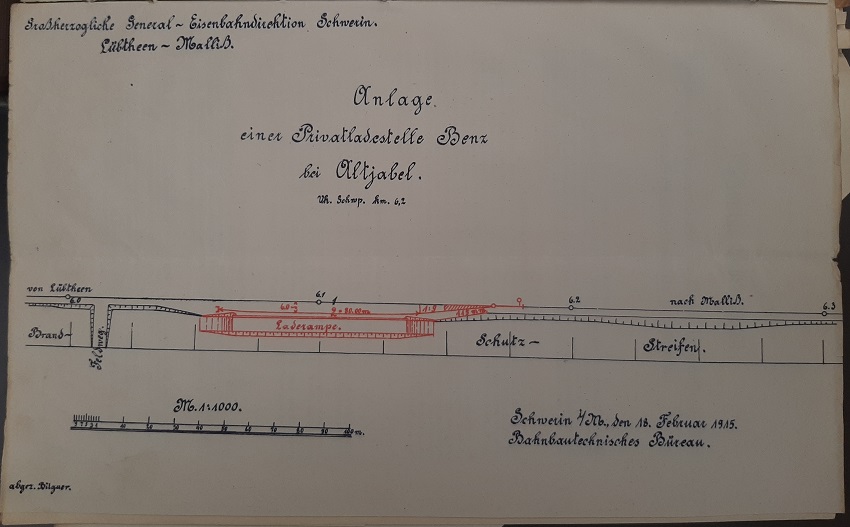 Großherzogliche General-Eisenbahndirektion Schwerin.
Lübtheen - Malliß.
Anlage
einer Privatladestelle Benz
bei Altjabel.
Uh. Schwp. km. 6,2
von Lübtheen
6.0
6.1
6.2
nach Malliß.
6.3
Laderampe.
Brand-
Feldweg.
Schutz-
Streifen.
M. 1:1000.
Schwerin i/M., den 18. Februar 1915.
Bahnbautechnisches Büreau.
abgez. Bilguer.